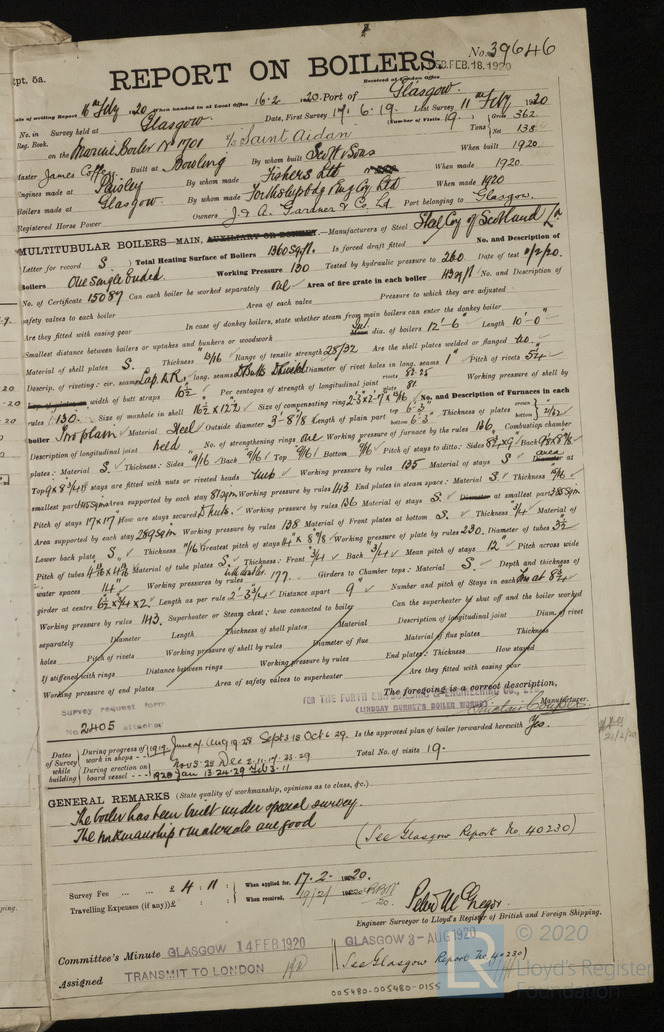 No. 39646
pt. 5a.
REPORT ON BOILERS.
Received at London Office FEB. 18. 1920
Date of writing Report 16th Feby 1920 When handed in at Local Office 16.2.1920 Port of Glasgow.
No. in Survey held at Glasgow. Date, First Survey 17.6.19. Last Survey 11th Feby 1920
Reg. Book. (Number of Visits 19) Gross 362
on the Marine Boiler No 1701 S/S Saint Aidan Tons Net 138
Master James Built at Bowling By whom built Scott & Sons When built 1920
Engines made at Paisley By whom made Fishers Ltd When made 1920.
Boilers made at Glasgow. By whom made Forth Shipbdg & Eng Co Ltd When made 1920
Registered Horse Power Owners J. & A. Gardner & Co. Ld Port belonging to Glasgow.
MULTITUBULAR BOILERS—MAIN, AUXILIARY OR DONKEY.—Manufacturers of Steel Steel Coy of Scotland Ld
Letter for record S. Total Heating Surface of Boilers 1360 sq ft. Is forced draft fitted No. and Description of
Boilers One Single Ended. Working Pressure 130 Tested by hydraulic pressure to 260 Date of test 11/2/20.
No. of Certificate 15087 Can each boiler be worked separately one Area of fire grate in each boiler 43 sq ft No. and Description of
safety valves to each boiler Area of each valve Pressure to which they are adjusted
Are they fitted with easing gear In case of donkey boilers, state whether steam from main boilers can enter the donkey boiler
Smallest distance between boilers or uptakes and bunkers or woodwork dia. of boilers 12'-6" Length 10'-0"
Material of shell plates S. Thickness 13/16 Range of tensile strength 28/32 Are the shell plates welded or flanged no.
Descrip. of riveting: cir. seams Lap. D.R. long. seams D. Butts Diameter of rivet holes in long. seams 1" Pitch of rivets 5 1/4
width of butt straps 10 1/2 Per centages of strength of longitudinal joint rivets 82.25 plate 81 Working pressure of shell by
rules 130. Size of manhole in shell 16 1/2 x 12 1/2 Size of compensating ring No. and Description of Furnaces in each
boiler Two plain Material Steel Outside diameter 3'-8 7/8 Length of plain part top 6'-3" bottom 6'-3" Thickness of plates crown bottom 21/32
Description of longitudinal joint weld No. of strengthening rings one Working pressure of furnace by the rules 136. Combustion chamber
plates: Material S. Thickness: Sides 9/16 Back 9/16 Top 9/16 Bottom Pitch of stays to ditto: Sides 8 1/2 x 9 Back
Top 9 x 8 3/4 If stays are fitted with nuts or riveted heads nuts Working pressure by rules 135 Material of stays S area Diameter at
smallest part Area supported by each stay Working pressure by rules 143 End plates in steam space: Material S. Thickness 15/16
Pitch of stays 17 x 17 How are stays secured D. nuts. Working pressure by rules 136 Material of stays S. Diameter at smallest part
Area supported by each stay 289 sq in Working pressure by rules 138 Material of Front plates at bottom S. Thickness 3/4 Material of
Lower back plate S Thickness 11/16 Greatest pitch of stays 14" x 8 7/8 Working pressure of plate by rules 230. Diameter of tubes 3 1/2
Pitch of tubes Material of tube plates S. Thickness: Front 3/4 Back 3/4 Mean pitch of stays 12" Pitch across wide
water spaces 14" Working pressures by rules 177. Girders to Chamber tops: Material S. Depth and thickness of
girder at centre 6 1/2 x 3/4 x 2 Length as per rule 2'-3 3/4 Distance apart 9" Number and pitch of Stays in each two at 8 3/4
Working pressure by rules 143. Superheater or Steam chest; how connected to boiler Can the superheater be shut off and the boiler worked
separately Diameter Length Thickness of shell plates Material Description of longitudinal joint Diam. of rivet
holes Pitch of rivets Working pressure of shell by rules Diameter of flue Material of flue plates Thickness
If stiffened with rings Distance between rings Working pressure by rules End plates: Thickness How stayed
Working pressure of end plates Area of safety valves to superheater Are they fitted with easing gear
The foregoing is a correct description,
Survey request form FOR THE FORTH SHIPBUILDING & ENGINEERING CO., LTD.
No. 2405 attached (LINDSAY BURNET'S BOILER WORKS) Sinclair Couper Manufacturer.
Dates of Survey while building
During progress of work in shops - - 1919 June 17 Aug 19.28 Sept 3.18 Oct 6.29. Is the approved plan of boiler forwarded herewith Yes.
During erection on board vessel - - - Nov 5.25 Dec 2.11.17.23.29 1920 Jan 13.24.29 Feb 3.11 Total No. of visits 19.
GENERAL REMARKS (State quality of workmanship, opinions as to class, &c.)
The boiler has been built under special survey.
The workmanship & materials are good
(See Glasgow Report No. 40230)
Survey Fee ... ... £ 4 : 11 : When applied for, 17.2.1920.
Travelling Expenses (if any) £ : : When received, 19/2/1920
Peter McGregor.
Engineer Surveyor to Lloyd's Register of British and Foreign Shipping.
Committee's Minute GLASGOW 14 FEB 1920 GLASGOW 3-AUG 1920
Assigned TRANSMIT TO LONDON See Glasgow Report No. 40230)
© 2020
LR
Lloyd's Register
Foundation
005480-005480-0155